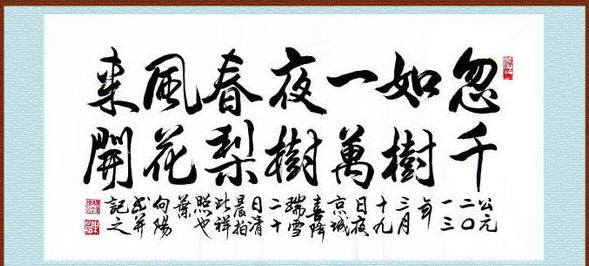 忽如一夜春風来
千樹萬樹梨花開
公元二〇一三年三月十九日夜京城喜降瑞雪二十日清晨拍此祥照也葉向陽書并記之